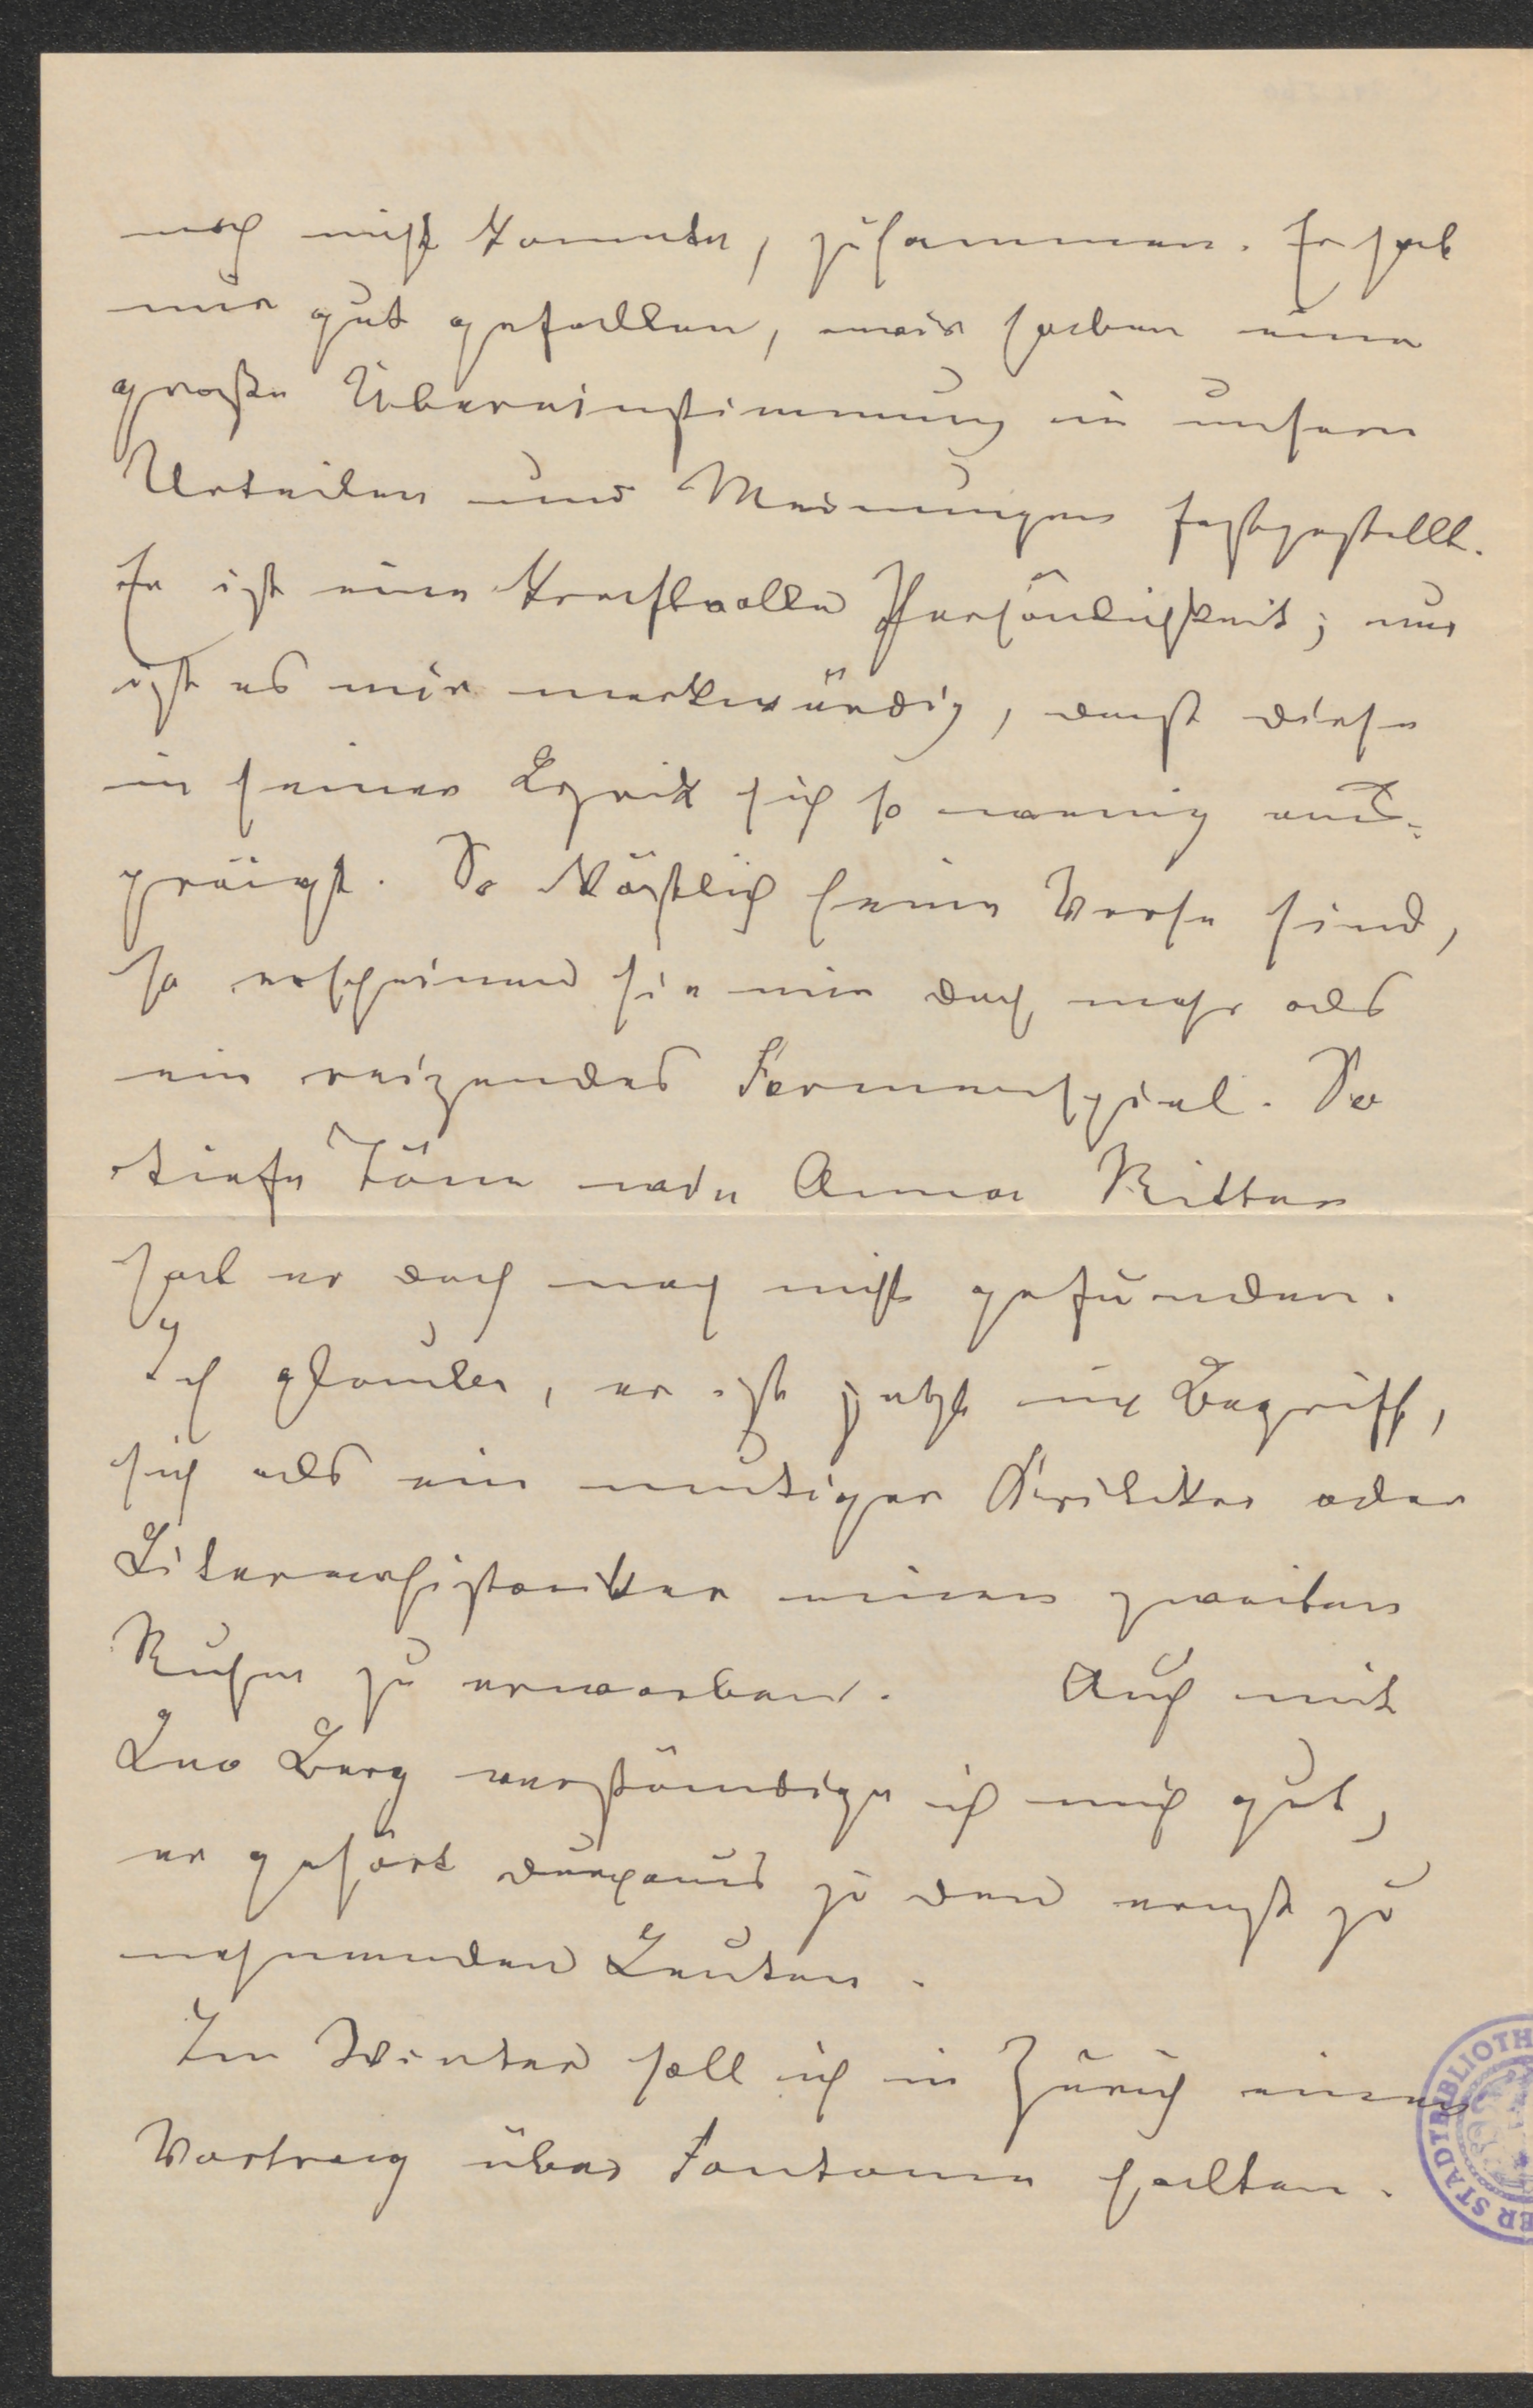 noch nicht kannte, zusammen. Er hat
mir gut gefallen, wir haben eine
große Übereinstimmung in unsern
Urteilen und Meinungen festgestellt.
Er ist eine kraftvolle Persönlichkeit; nur
ist es mir merkwürdig, dass diese
in seiner Lyrik sich so wenig aus-
prägt. So köstlich seine Verse sind,
so erscheinen sie mir doch mehr als
ein reizendes Formenspiel. So
tiefe Töne wie Anna Ritter
hat er doch noch nicht gefunden.
Ich glaube, er ist jetzt im Begriff,
sich als ein mutiger Kritiker oder
Literarhistoriker einen zweiten
Ruhm zu erwerben. Auch mit
Leo Berg verständige ich mich gut,
er gehört durchaus zu den ernst zu
nehmenden Leuten.
Im Winter soll ich in Zürich einen
Vortrag über Fontane halten.
ER STADTBIBLIOTH